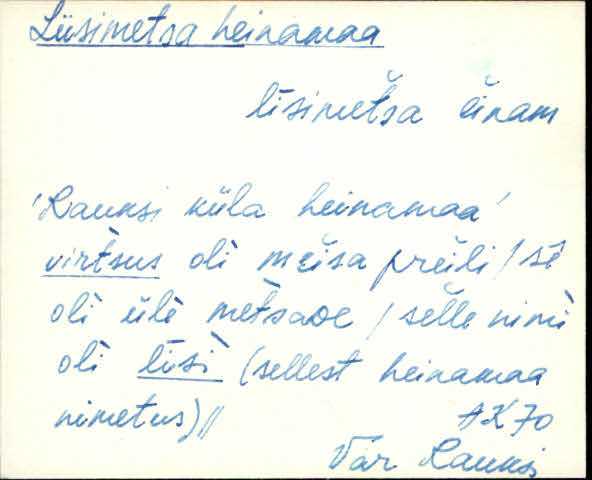 Liisimetsa heinamaa
lisimetsa einam
'Rauksi küla heinamaa'
virtsus oli meisa preili / se
oli üle metsade / selle nimi
oli lisi (sellest heinamaa
nimetus) //
AK 70
Vär Rauksi